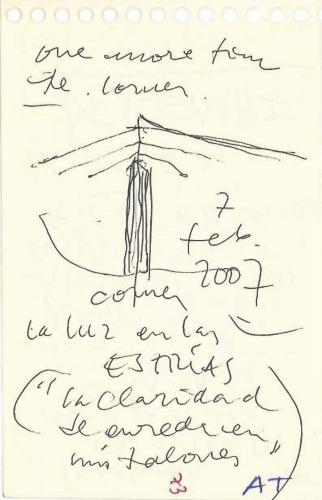 one more time
the . corner.
7
feb.
2007
corner
la luz en las
ESTRÍAS
("la claridad
se enrede en
mis talones")
23
AT